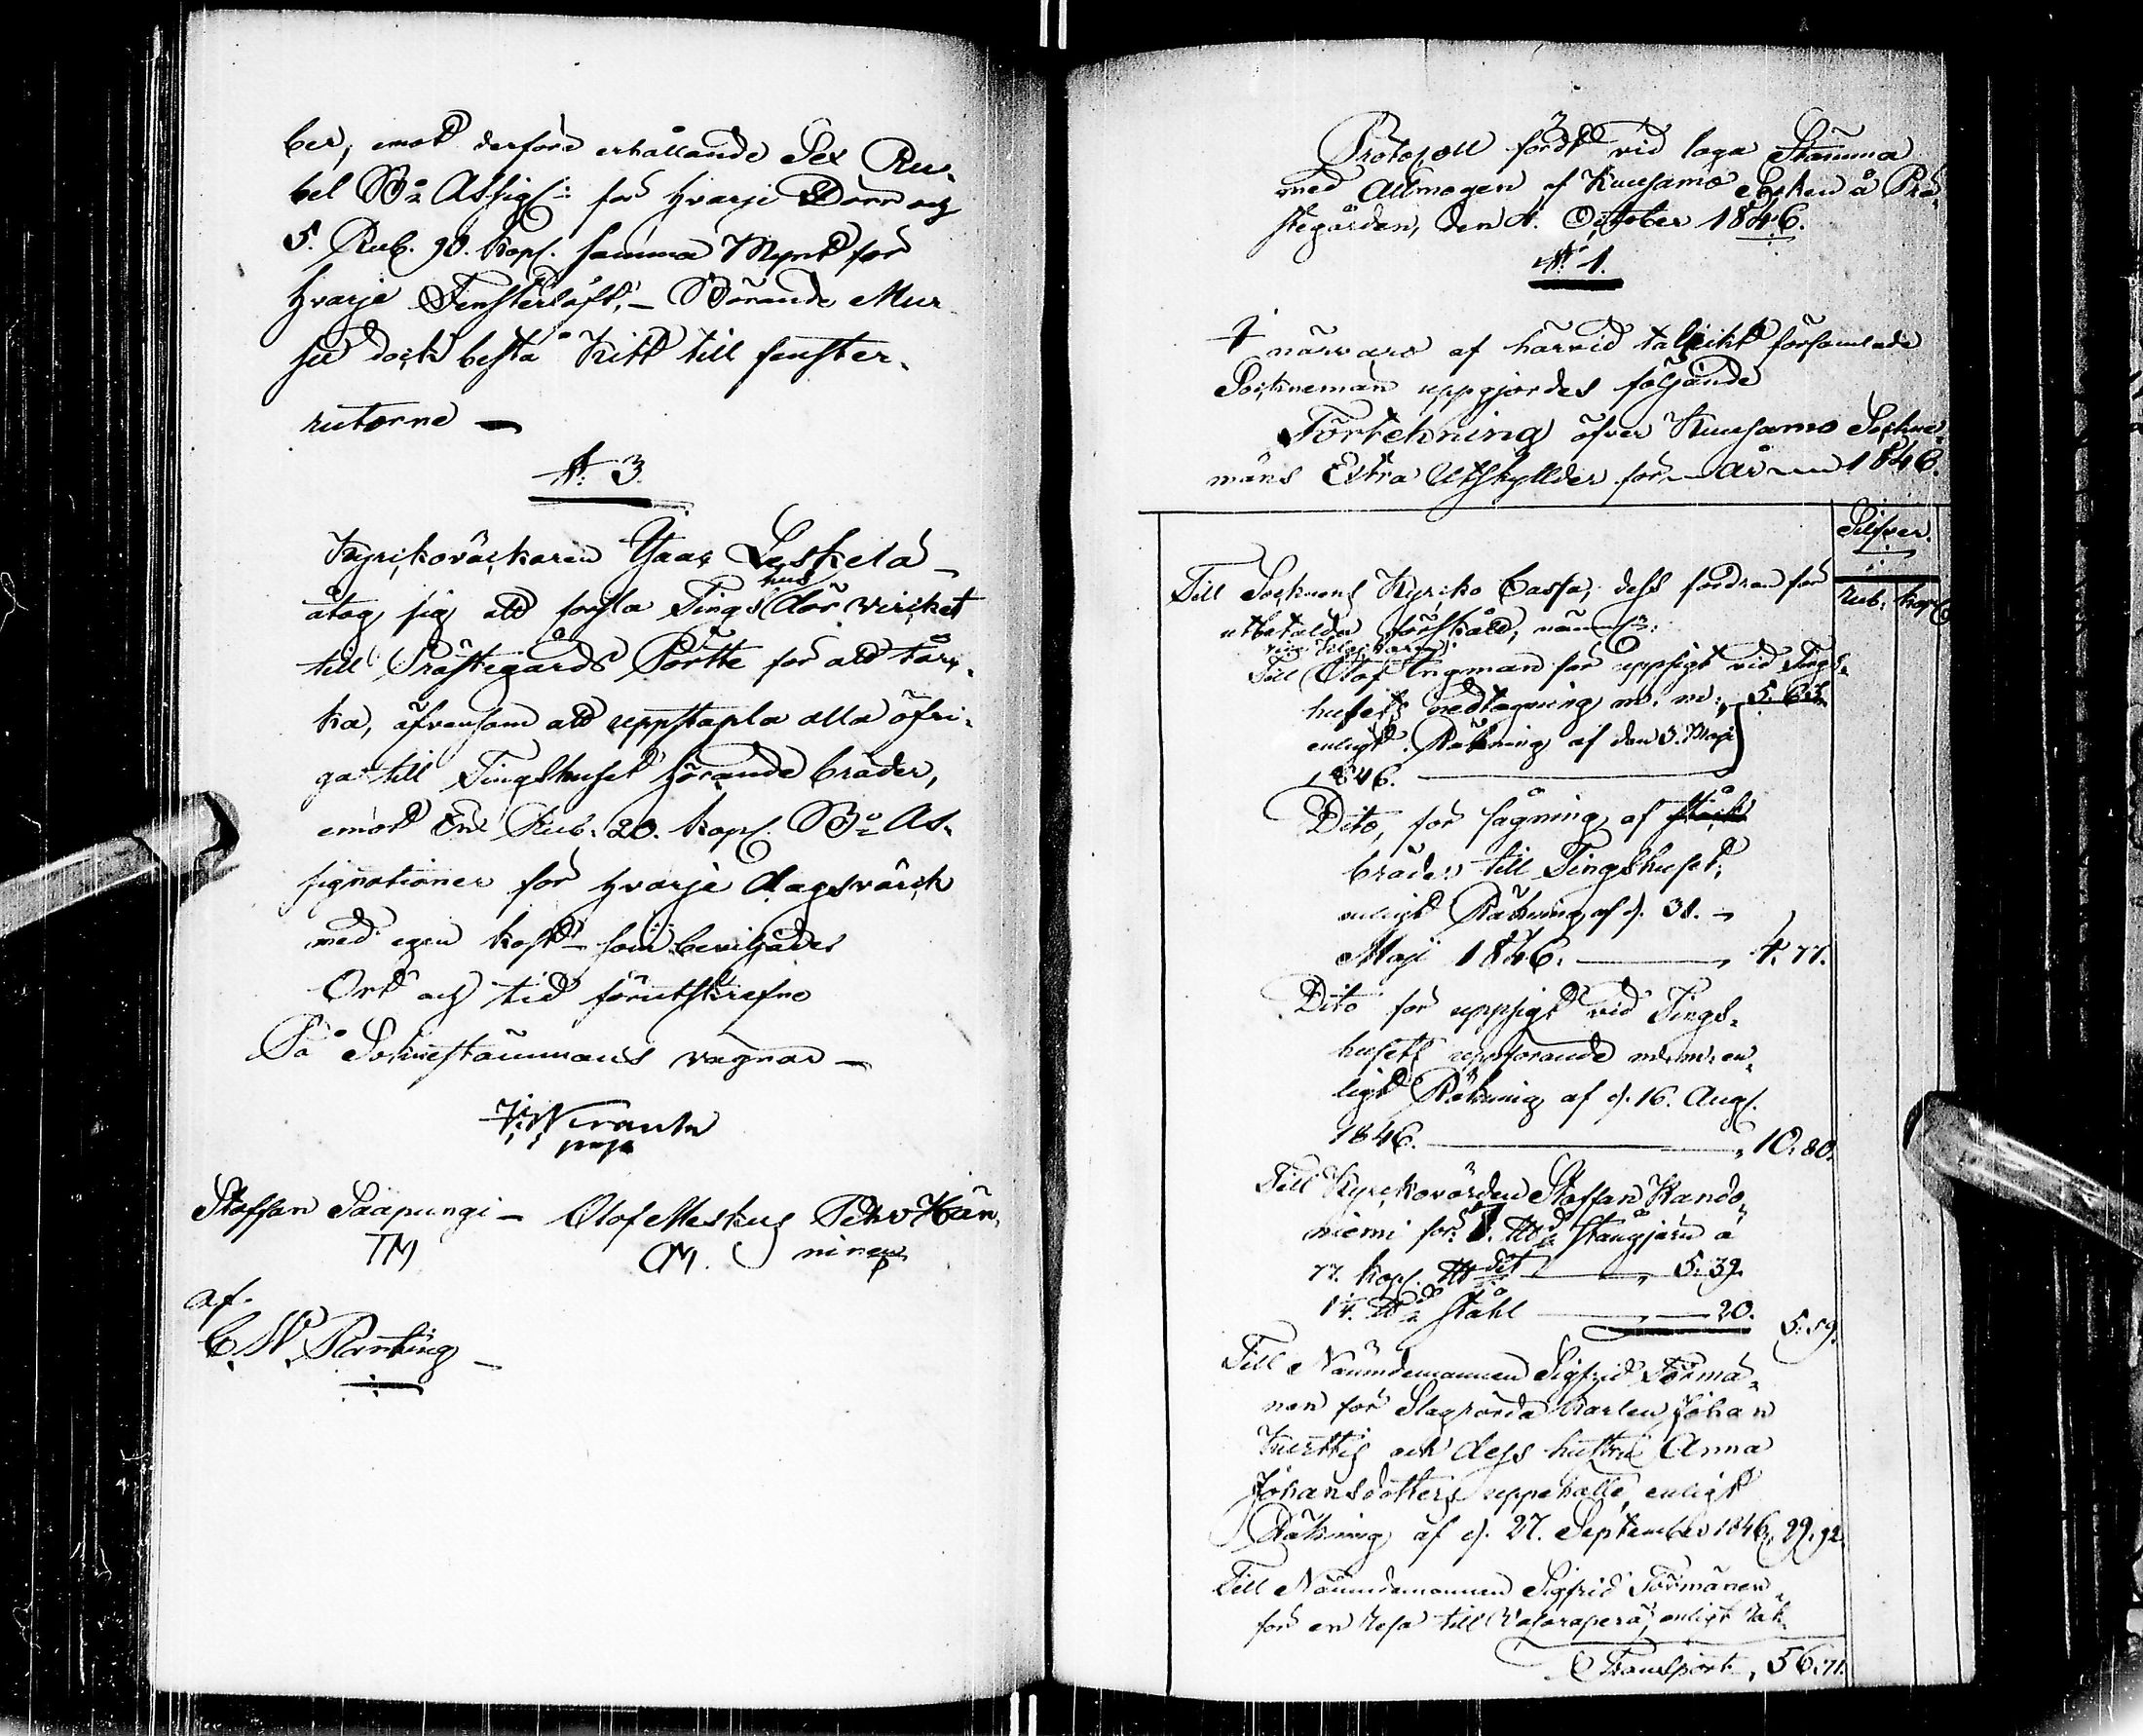 ber, emot derföre erhållande Sex Ru-
bel B:co Assign: för hvarje Dörr och
5. Rub. 90. kop. samma Mynt för
hvarje Fensterluft, — Börande Mur
dock bestå Kitt till fenster-
rutorne —
N: 3.
Kyrkoväckaren Isaac Leskelä
hus
åtog sig att forsla Tings dörvirket
till Prästegårds Pörtte för att tor-
ka, äfvensom att uppstapla alla öfri-
ga till Tingshuset hörande bräder,
emot En Rub: 20. kop. B:co As-
signationer för hvarje dagsvärck
med egen kost — som beviljades
Ort och tid förutskrefne
På Soknestämmans vagnar —
Staffan Säapungi — Olof Meskus Petr Hän-
TM OM. ninen
af.
C. W. Planting —
Protocoll fördt vid laga Stämma
med Allmogen af Kuusamo Socken å Prä-
stegården, den 4. October 1846.
N: 1.
I närvaro af härvid talrikt församlade
Socknemän uppgjordes följande
Förtekning öfver Kuusamo Sockne-
mäns Extra Utskyllder för år 1846.
Silfver.
Till Socknens Kyrko Cassa, dess fordran för
Rub: kop.
utbetalde förskått, näml:
Till Olof Engman för uppsigt vid Tings-
husets nedtagning m. m. 5. 63.
enligt Räkning af den 3. Maji
1846.
Dito, för sågning af stock
bräder till Tingshuset,
enligt Räkning af d. 31.
Maji 1846. — 4. 77.
Dito för uppsigt vid Tings-
husets uppförande m. m. en-
ligt Räkning af d. 16. Aug.
1846. — 10. 80.
Till Kyrkovärden Staffan Kando-
niemi för 7. LLd Stångjern à
77. kop. LLdet — 5. 39.
1 1/4. LLd Stål — 20. 5. 59.
Till Nämndemannen Sigfrid Törmä-
nen för Slagrörda Karlen Johan
Kurttis och dess hustru Anna
Johansdotters uppehälle, enligt
Räkning af d. 27. September 1846. 29. 92.
Till Nämndemannen Sigfrid Törmänen
för en resa till Vasaraperä, enligt räk-
Transport, 56. 71.